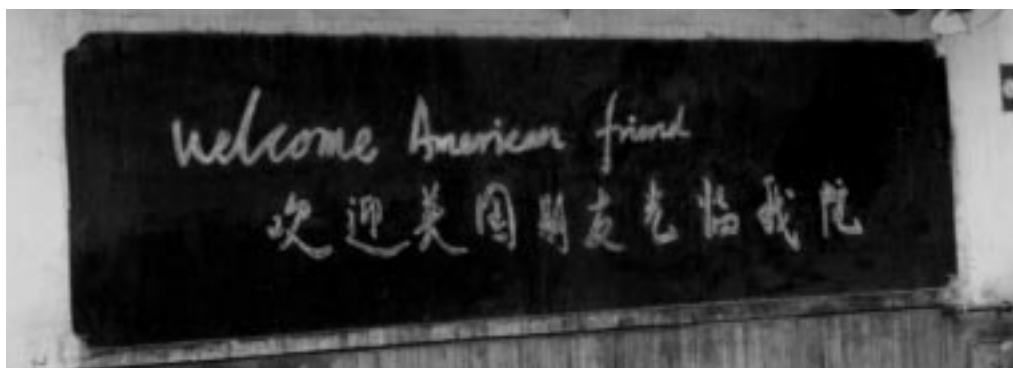 welcome American friend
欢迎美国朋友光临我院